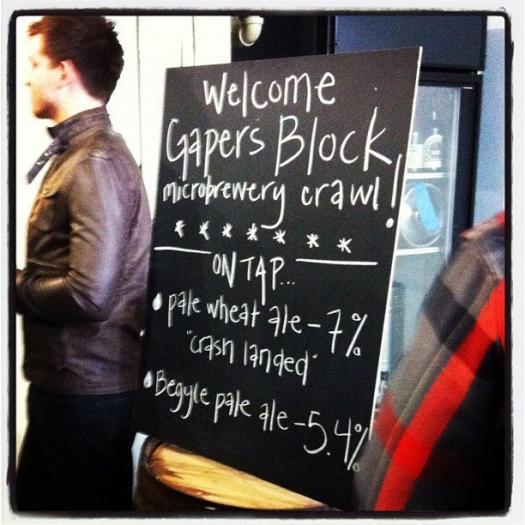 Welcome
Gapers Block
microbrewery crawl!
* * * * * * *
ON TAP...
pale wheat ale - 7%
"crash landed"
Begyle pale ale - 5.4%